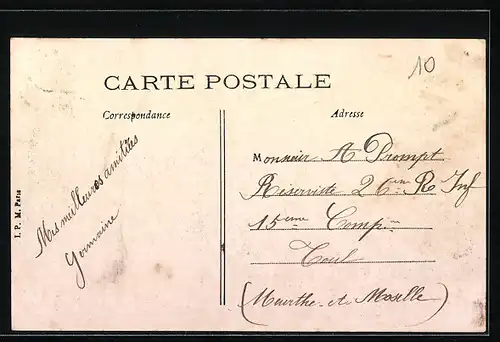 10
CARTE POSTALE
Correspondance
Adresse
Mes meilleures amitiés
Germaine
Monsieur A Prompt
Réserviste 26ème Rg Inf
15ème Comp.ie
Toul
(Meurthe-et-Moselle)
I. P. M. Paris